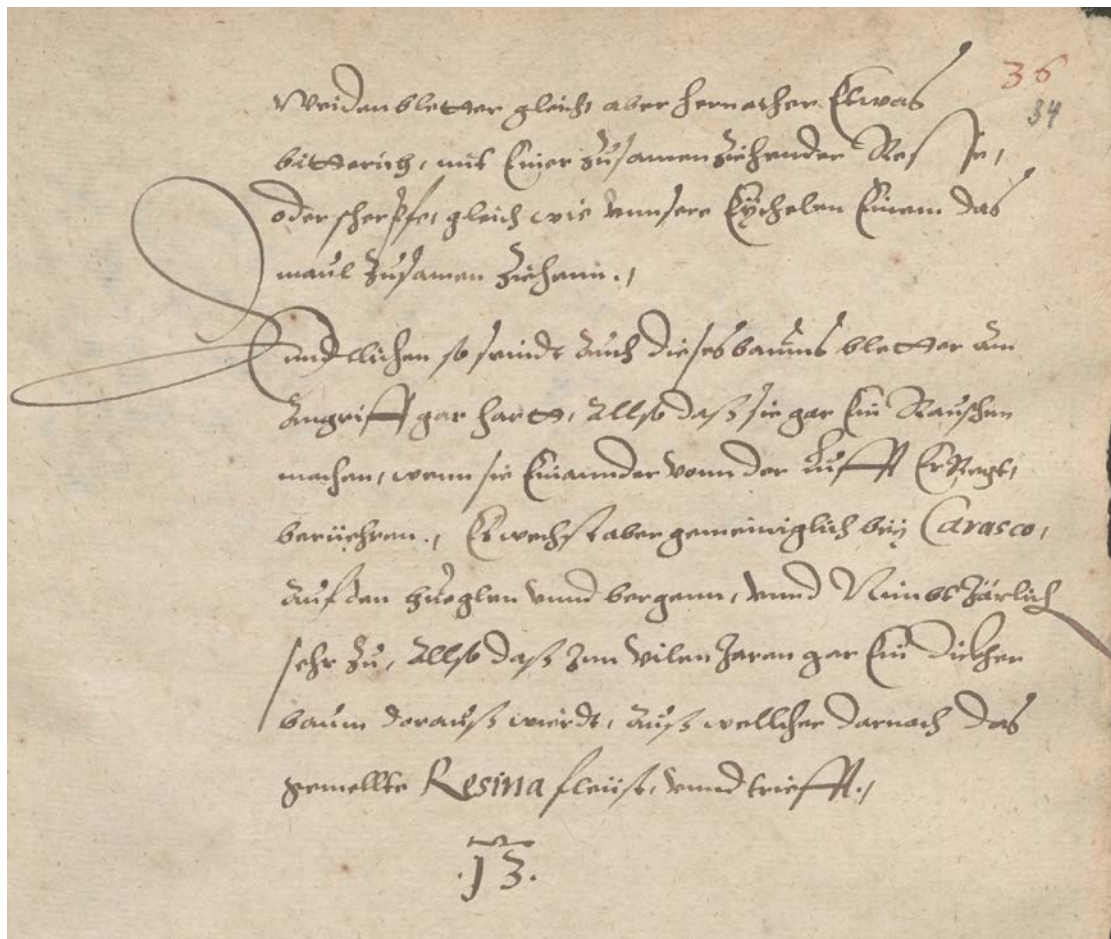 36
34
Weidenbletter gleich aber hernacher Etwas
bitterich, mit Einer zusamenziehender Resse,
oder scherpfe, gleich wie vnnsere Eÿchelen Einem das
maul zusamen ziehenn.,
Enndtlichen so seindt auch dieses baums bletter am
Angriff gar hartt, Allso daß sie gar Ein Rauschen
machen, wenn sie Einannder vonn der Lufft ErRegt,
berüehren., Es wechst aber gemeiniglich beÿ Carasco,
auf den hüeglen vnnd bergenn, vnnd Nimbt Järlich
sehr zu, Allso daß Inn vilen Jaren gar Ein dickher
baum darauß wierdt, auß wellcher darnach das
gemellte Resina fleüst, vnnd triefft.,
.13.